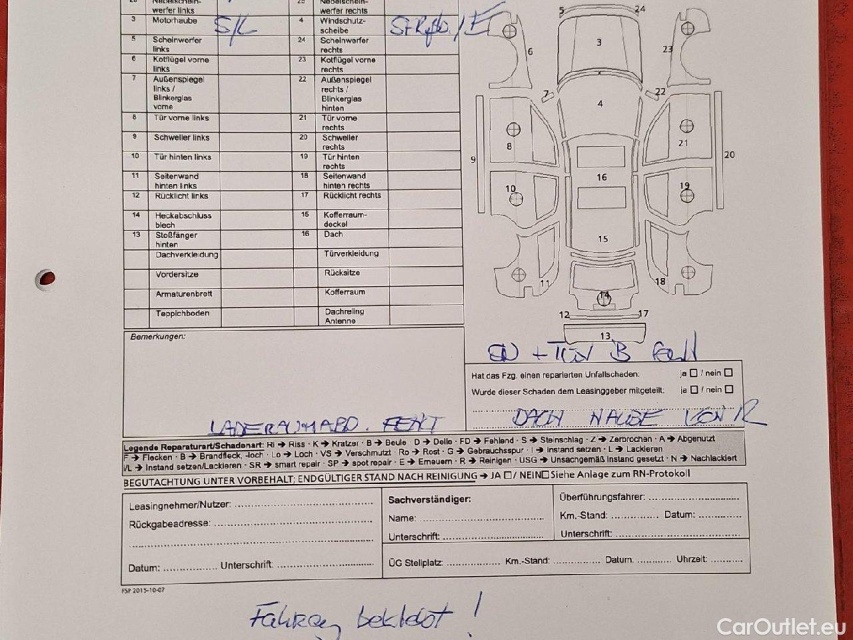 werfer links werfer rechts
3 Motorhaube S/L 4 Windschutz-
scheibe
5 Scheinwerfer
links 24 Scheinwerfer
rechts
6 Kotflügel vorne
links 23 Kotflügel vorne
rechts
7 Außenspiegel
links /
Blinkerglas
vorne 22 Außenspiegel
rechts /
Blinkerglas
hinten
8 Tür vorne links 21 Tür vorne
rechts
9 Schweller links 20 Schweller
rechts
10 Tür hinten links 19 Tür hinten
rechts
11 Seitenwand
hinten links 18 Seitenwand
hinten rechts
12 Rücklicht links 17 Rücklicht rechts
14 Heckabschluss
blech 15 Kofferraum-
deckel
13 Stoßfänger
hinten 16 Dach
Dachverkleidung Türverkleidung
Vordersitze Rücksitze
Armaturenbrett Kofferraum
Teppichboden Dachreling
Antenne
3
6
23
7
22
4
8
21
9
20
10
19
16
15
11
18
14
12
17
13
Bemerkungen:
LADERAUMABD. FEHLT
Hat das Fzg. einen reparierten Unfallschaden: ja / nein
Wurde dieser Schaden dem Leasinggeber mitgeteilt: ja / nein
DACH HAUBE
Legende Reparaturart/Schadenart: Ri → Riss · K → Kratzer · B → Beule · D → Delle · FD → Fehlend · S → Steinschlag · Z → Zerbrochen · A → Abgenutzt
F → Flecken · B → Brandfleck, -loch · Lo → Loch · VS → Verschmutzt · Ro → Rost · G → Gebrauchsspur · I → Instand setzen · L → Lackieren
I/L → Instand setzen/Lackieren · SR → smart repair · SP → spot repair · E → Erneuern · R → Reinigen · USG → Unsachgemäß Instand gesetzt · N → Nachlackiert
BEGUTACHTUNG UNTER VORBEHALT; ENDGÜLTIGER STAND NACH REINIGUNG → JA / NEIN Siehe Anlage zum RN-Protokoll
Leasingnehmer/Nutzer:
Rückgabeadresse:
Datum: Unterschrift:
Sachverständiger:
Name:
Unterschrift:
Überführungsfahrer:
Km.-Stand: Datum:
Unterschrift:
ÜG Stellplatz: Km.-Stand: Datum. Uhrzeit:
FSP 2015-10-07
Fahrzeug beklebt !
CarOutlet.eu